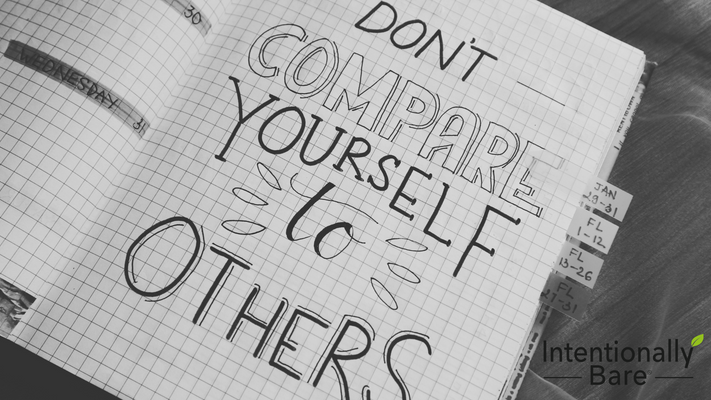 30
WEDNESDAY 31
DON'T
COMPARE
YOURSELF
to
OTHERS
JAN
29-31
FL
1-12
FL
13-26
FL
27-31
Intentionally
Bare